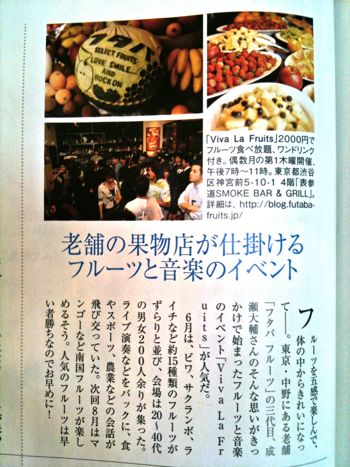 SELECT FRUITS
LOVE SMILE
AND
ROCK ON
「Viva La Fruits」2000円で
フルーツ食べ放題、ワンドリンク
付き。偶数月の第1木曜開催、
午後7時〜11時。東京都渋谷
区神宮前5-10-1 4階「表参
道SMOKE BAR & GRILL」。
詳細は、http://blog.futaba-
fruits.jp/
老舗の果物店が仕掛ける
フルーツと音楽のイベント
フルーツを五感で楽しんで、
体の中からきれいになっ
て――。東京・中野にある老舗
「フタバフルーツ」の三代目、成
瀬大輔さんのそんな思いがきっ
かけで始まったフルーツと音楽
のイベント「Viva La Fr
uits」が人気だ。
6月は、ビワ、サクランボ、ラ
イチなど約15種類のフルーツが
ずらりと並び、会場は20〜40代
の男女200人余りが集った。
ライブ演奏などをバックに、食
やスポーツ、農業などの会話が
飛び交っていた。次回8月はマ
ンゴーなど南国フルーツが楽し
めるそう。人気のフルーツは早
い者勝ちなのでお早めに!